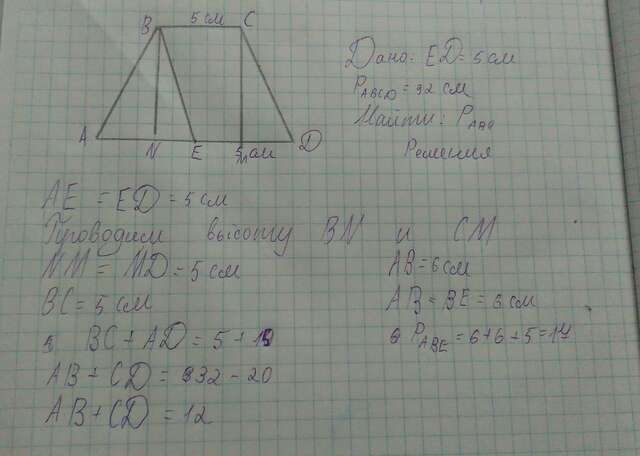 B 5 см C
A N E 5 см D
Дано: ED = 5 см
P ABCD = 32 см
Найти: P ABE
Решения
AE = ED = 5 см
Проводим высоту BN и CM
NM = MD = 5 см
BC = 5 см
BC + AD = 5 + 15
AB + CD = 32 - 20
AB + CD = 12
AB = 6 см
AB = BE = 6 см
P ABE = 6 + 6 + 5 = 17